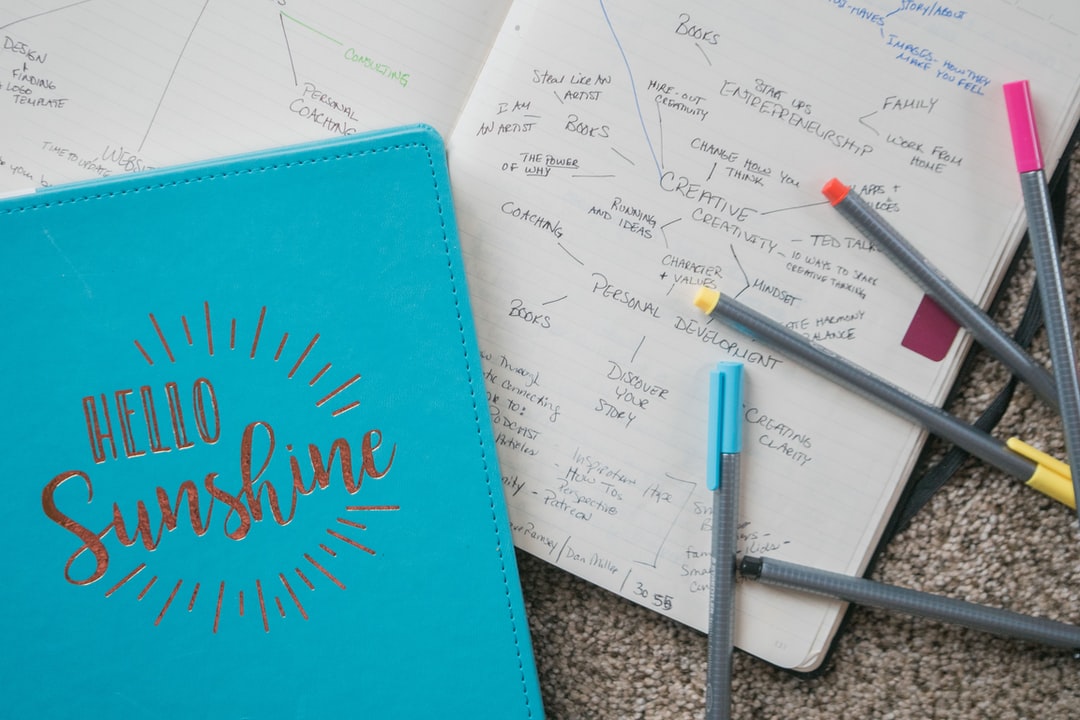 DESIGN
+
FINDING
LOGO
TEMPLATE
CONSULTING
PERSONAL
COACHING
TIME TO UPDATE
HELLO
Sunshine
BOOKS
STORY/ABOUT
IMAGES - HOW THEY
MAKE YOU FEEL
STEAL LIKE AN
ARTIST
I AM
AN ARTIST
BOOKS
THE POWER
OF WHY
HIRE-OUT
CREATIVITY
START UPS
ENTREPRENEURSHIP
FAMILY
WORK FROM
HOME
CHANGE HOW YOU
THINK
CREATIVE
CREATIVITY
APPS +
RUNNING
AND IDEAS
COACHING
TED TALK
10 WAYS TO SPARK
CREATIVE THINKING
CHARACTER
+ VALUES
MINDSET
HARMONY
BALANCE
PERSONAL DEVELOPMENT
BOOKS
DISCOVER
YOUR
STORY
CREATING
CLARITY
Through
Connecting
TO:
PODCAST
Articles
Inspiration
- How Tos
Perspective
Patreon
Ramsey / Dan Miller